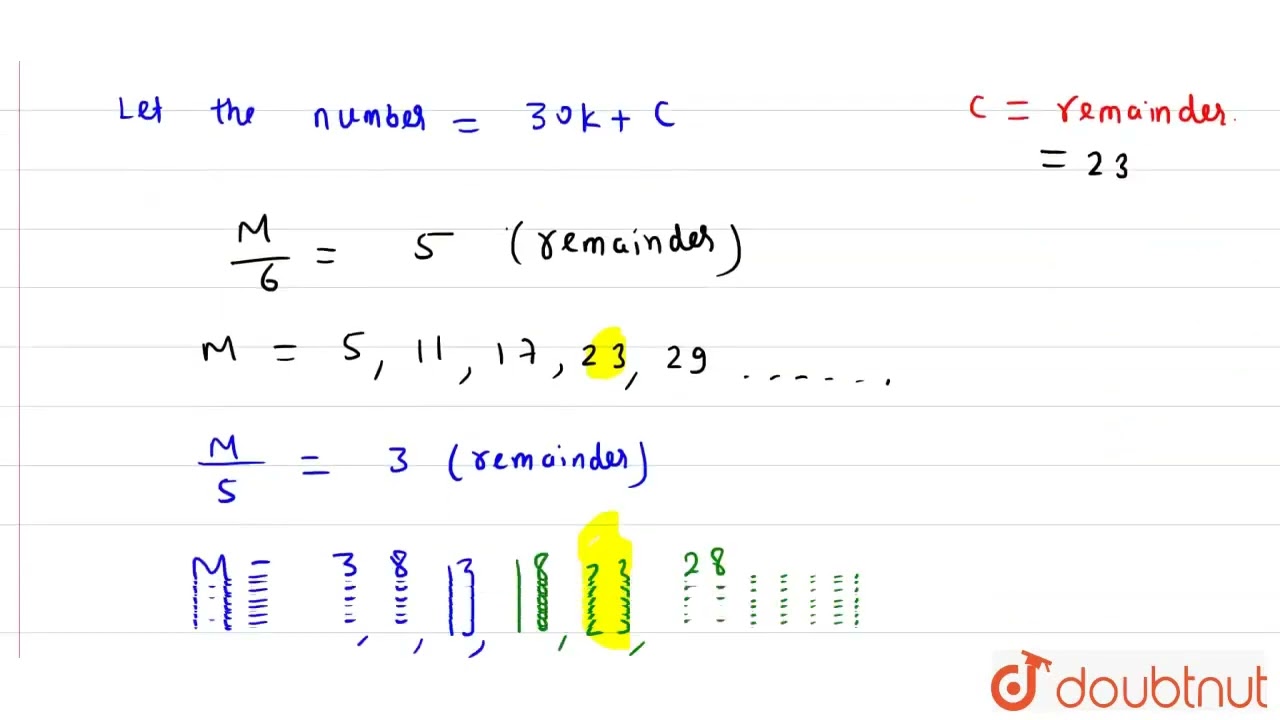 Let the number = 30k + C
C = remainder.
= 23
M/6 = 5 (remainder)
M = 5, 11, 17, 23, 29 .......
M/5 = 3 (remainder)
M = 3, 8, 13, 18, 23, 28
doubtnut